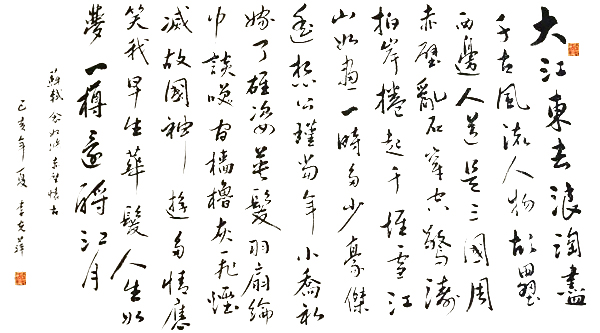 大江東去浪淘盡
千古風流人物故壘
西邊人道是三國周
赤壁亂石穿空驚濤
拍岸捲起千堆雪江
山如畫一時多少豪傑
遙想公瑾當年小喬初
嫁了雄姿英髮羽扇綸
巾談笑間檣櫓灰飛煙
滅故國神遊多情應
笑我早生華髮人生如
夢一樽還酹江月
蘇軾念奴嬌赤壁懷古
己亥年夏李